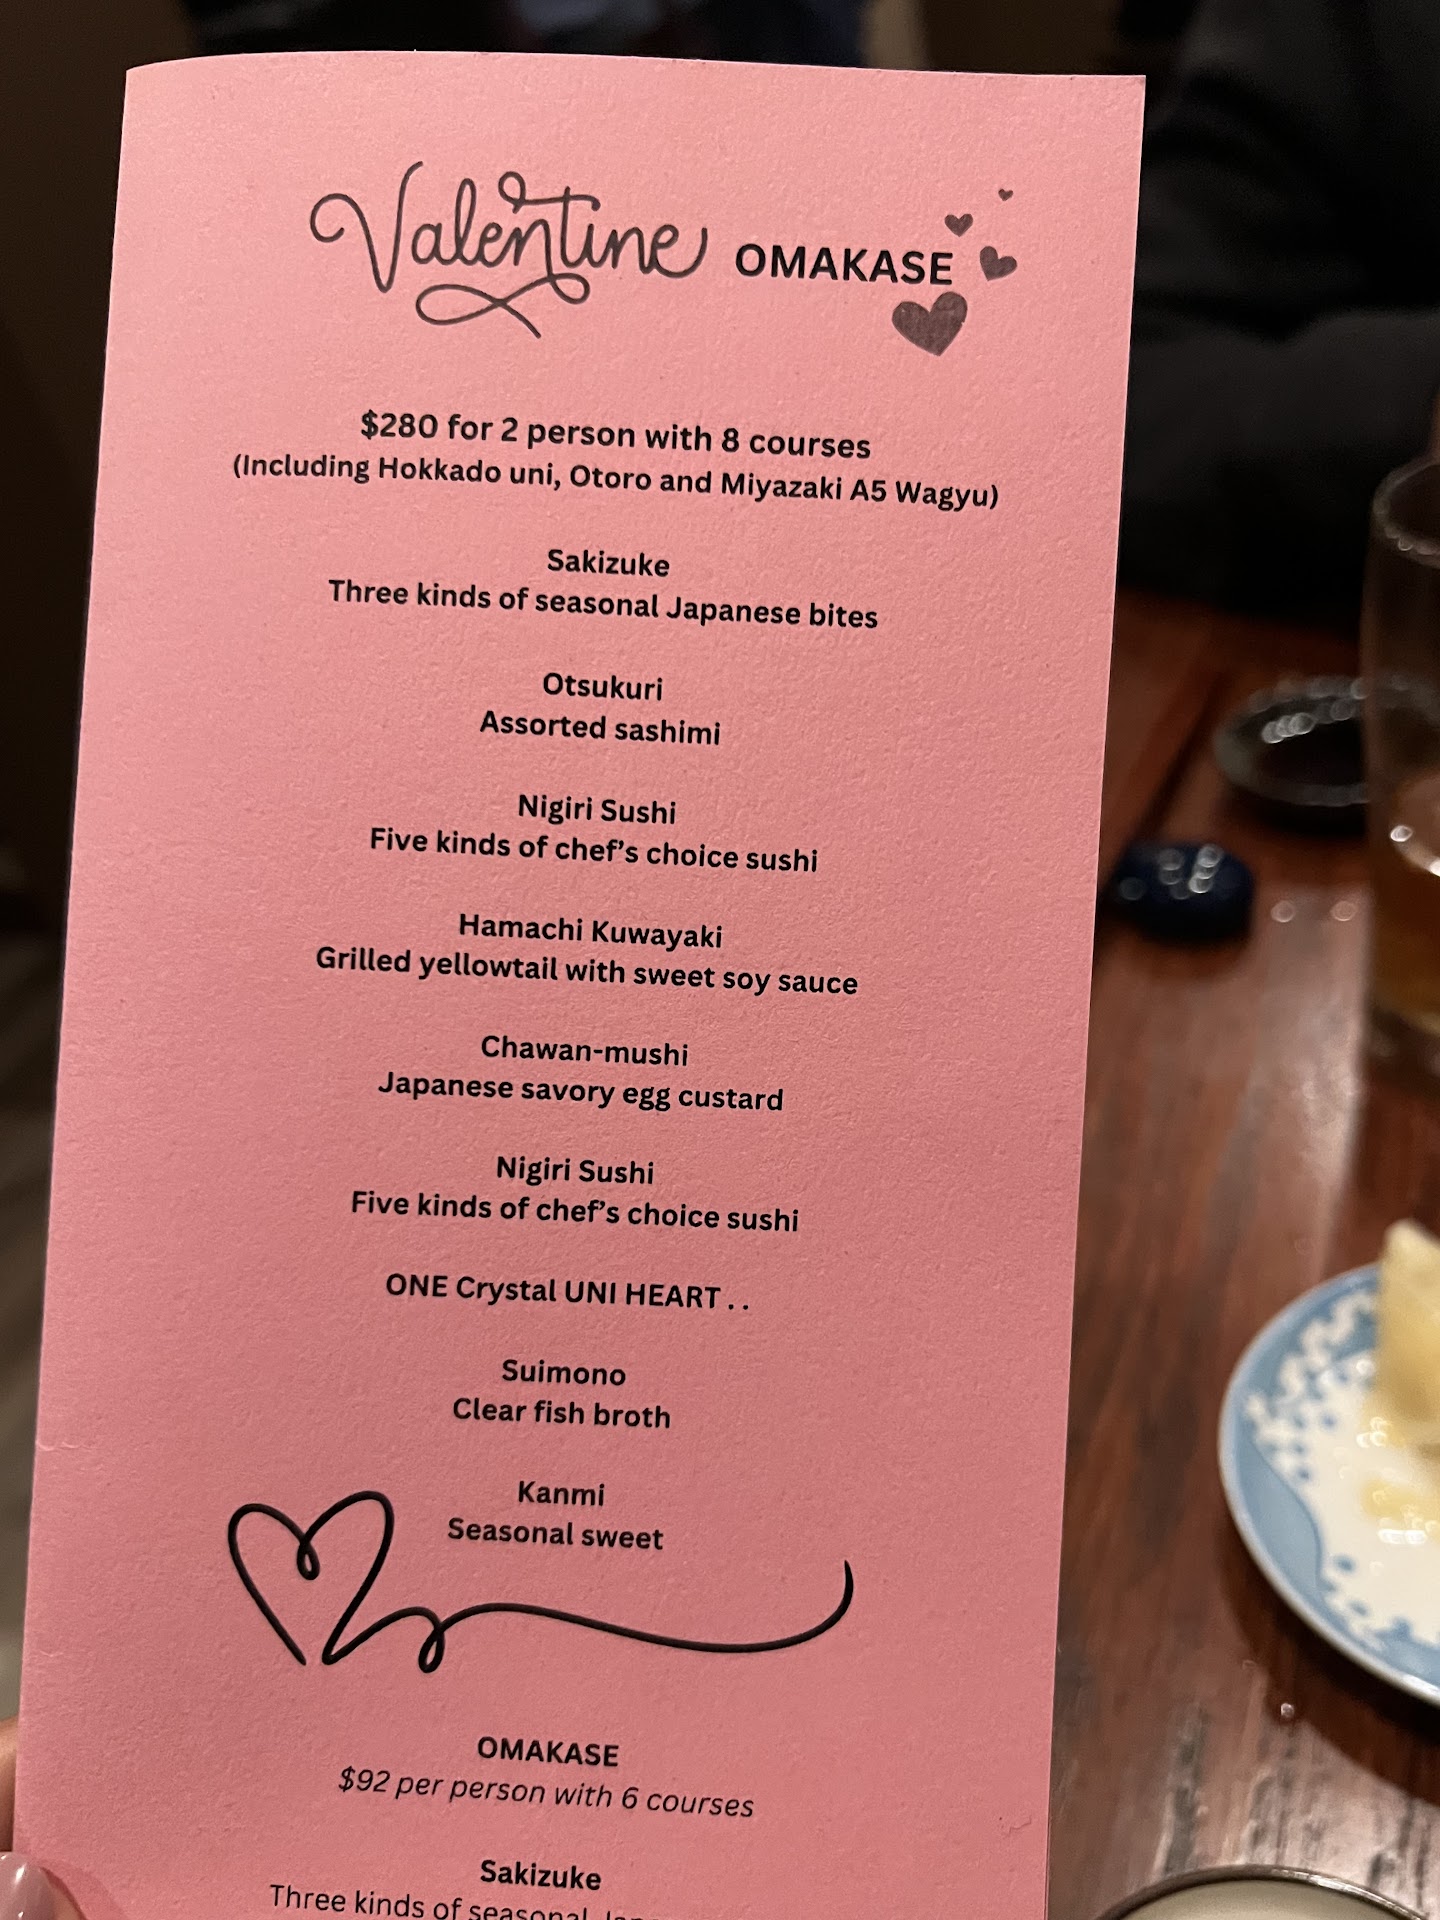 Valentine OMAKASE
$280 for 2 person with 8 courses
(Including Hokkado uni, Otoro and Miyazaki A5 Wagyu)
Sakizuke
Three kinds of seasonal Japanese bites
Otsukuri
Assorted sashimi
Nigiri Sushi
Five kinds of chef's choice sushi
Hamachi Kuwayaki
Grilled yellowtail with sweet soy sauce
Chawan-mushi
Japanese savory egg custard
Nigiri Sushi
Five kinds of chef's choice sushi
ONE Crystal UNI HEART . .
Suimono
Clear fish broth
Kanmi
Seasonal sweet
OMAKASE
$92 per person with 6 courses
Sakizuke
Three kinds of seasonal